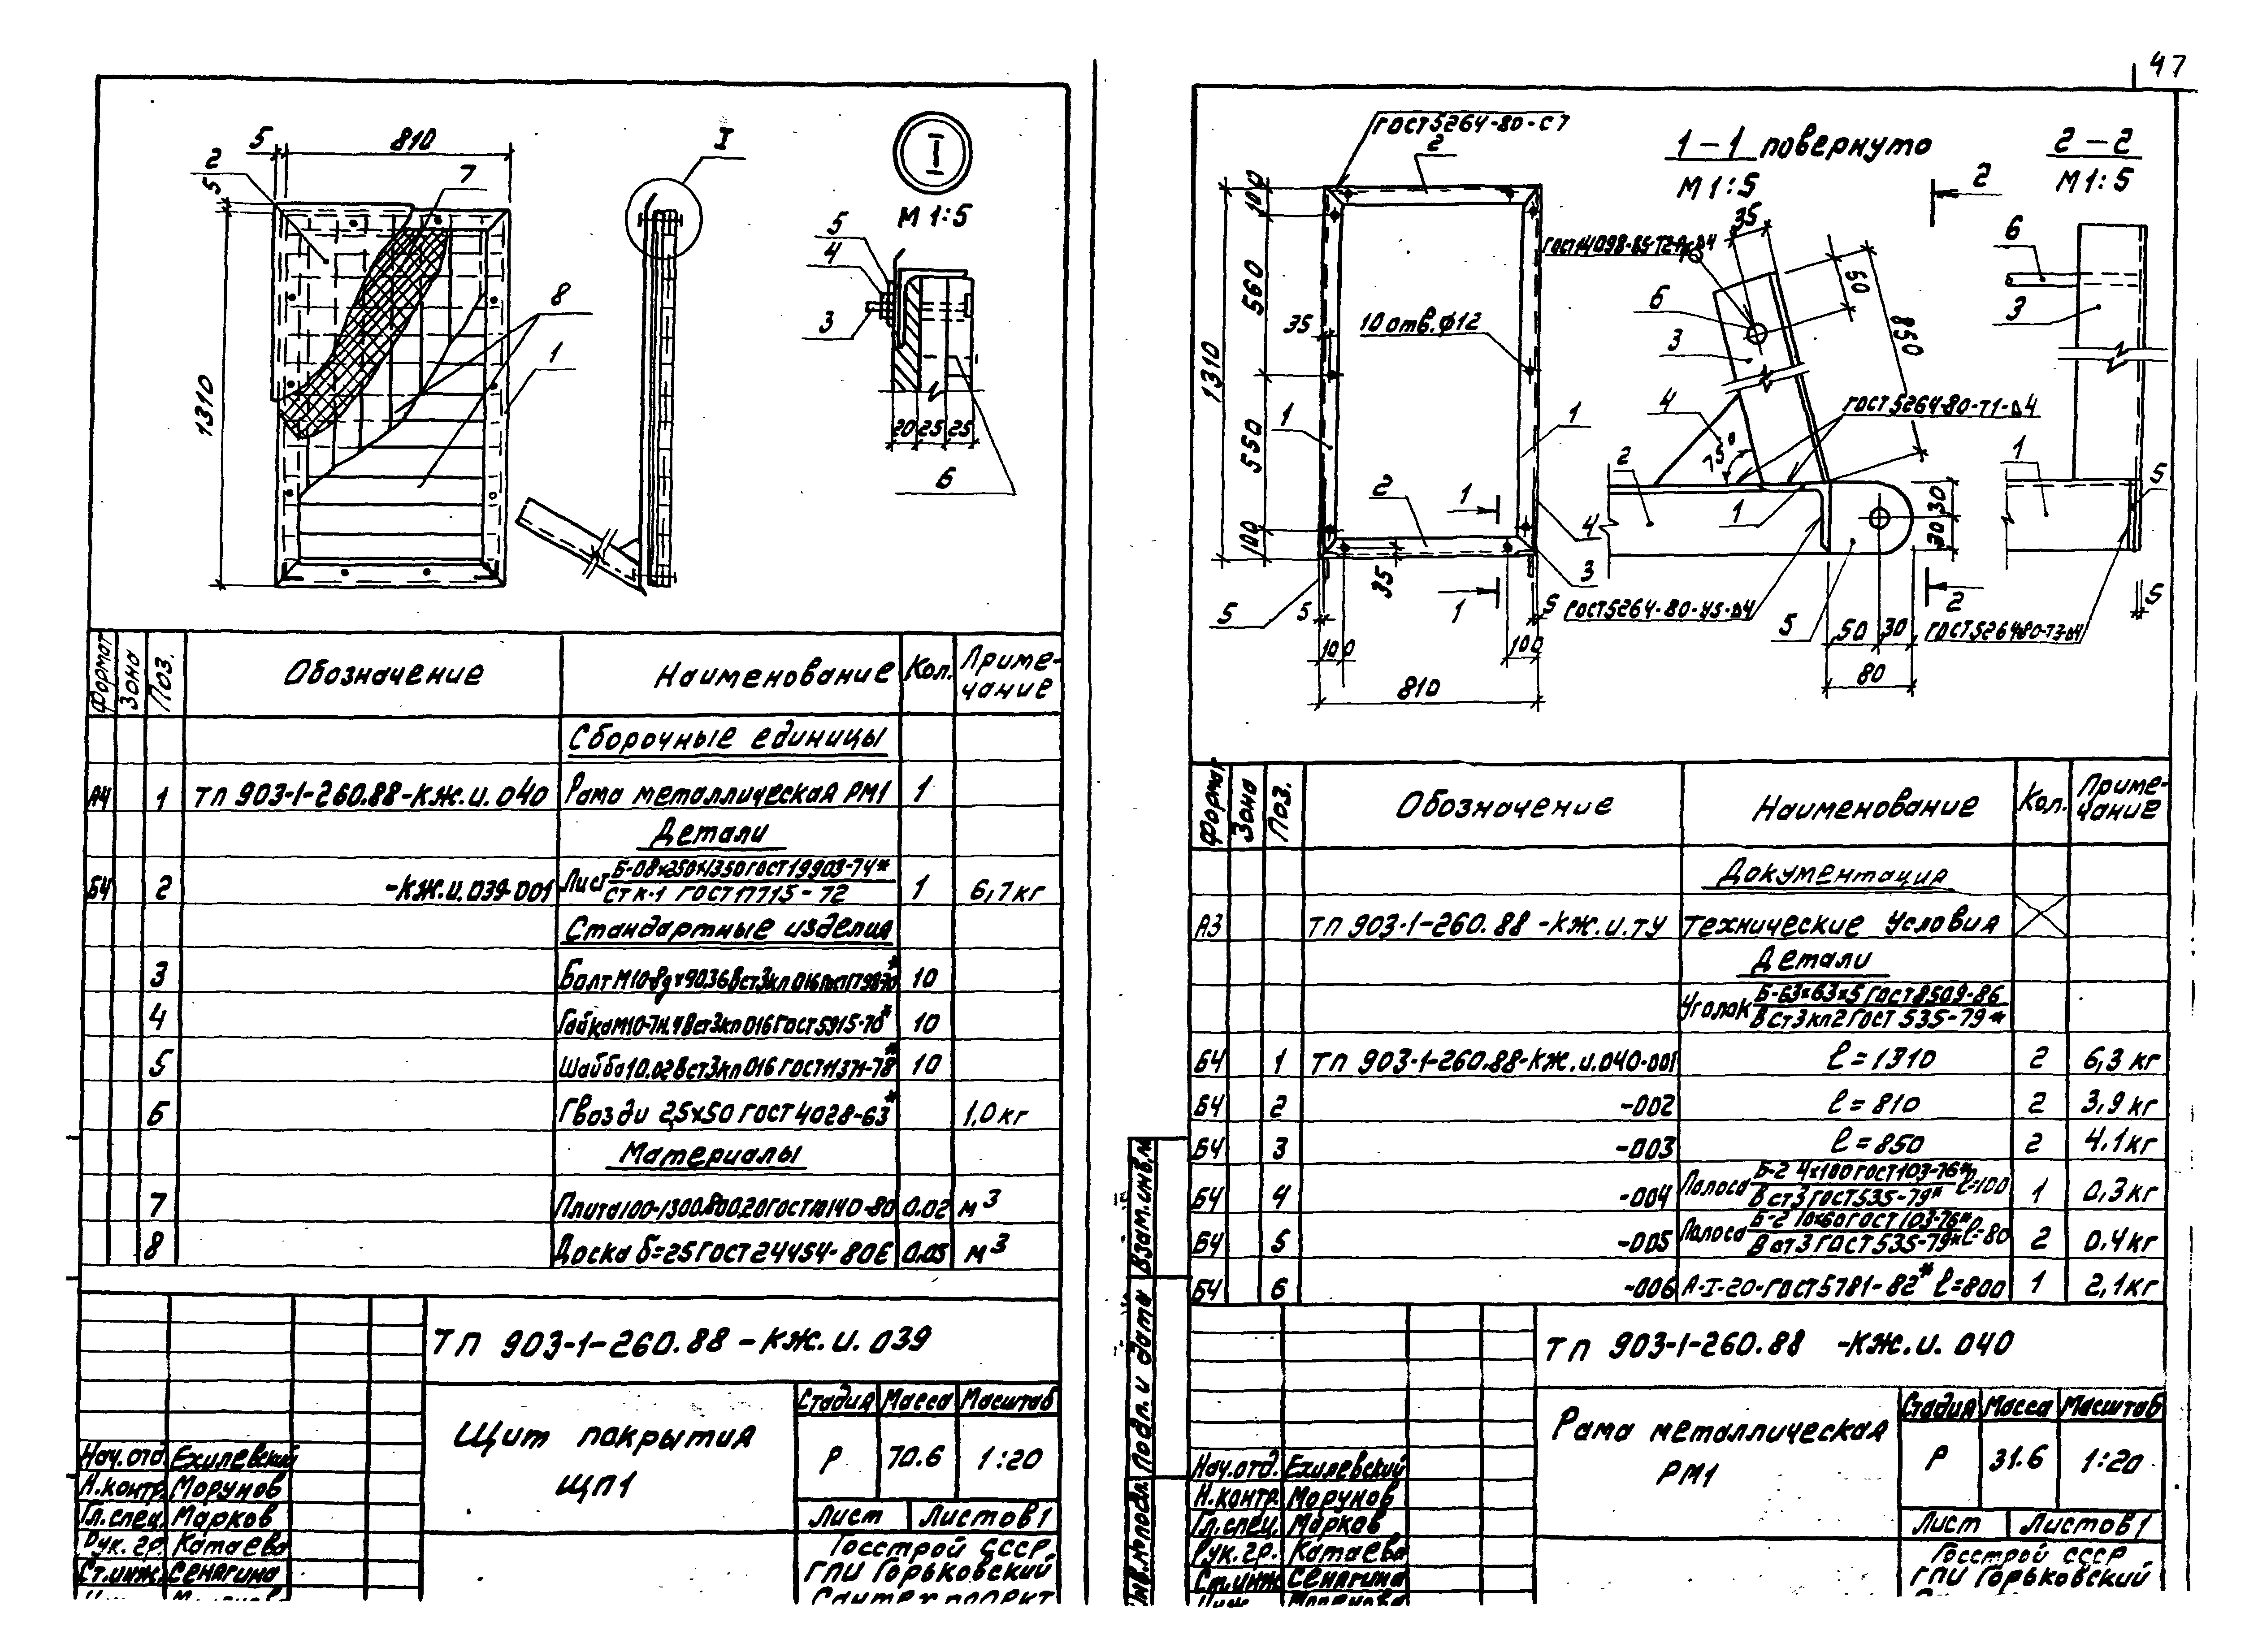 47
5
810
2
5
7
I
I
М 1:5
5
4
3
8
1
1310
20 25 25
6
Формат
Зона
Поз.
Обозначение
Наименование
Кол.
Приме-
чание
Сборочные единицы
А4 1 ТП 903-1-260.88-КЖ.И.040 Рама металлическая РМ1 1
Детали
Б4 2 -КЖ.И.039-001 Лист Б-08х250х1350 ГОСТ 19903-74* 1 6,7кг
СТ К-1 ГОСТ 17715-72
Стандартные изделия
3 10
4 Гайка М10-7Н.4 Вст3кп016 ГОСТ 5915-70* 10
5 Шайба 10.02 Вст3кп016 ГОСТ 11371-78* 10
6 Гвозди 2,5х50 ГОСТ 4028-63* 1,0кг
Материалы
7 Плита 100-1300.800.20 ГОСТ 10140-80 0.02 м3
8 Доска б=25 ГОСТ 24454-80Е 0.05 м3
ТП 903-1-260.88-КЖ.И.039
Щит покрытия
ЩП1
Стадия Масса Масштаб
Р 70.6 1:20
Лист Листов 1
Госстрой СССР
ГПИ Горьковский
Сантехпроект
Нач.отд. Ехилевский
Н.контр. Морунов
Гл.спец. Марков
Рук.гр. Катаева
Ст.инж. Сенягина
ГОСТ 5264-80-С7
2
1-1 повернуто
М 1:5
2
2-2
М 1:5
1310
100
560
550
100
35
10 отв. ф12
1
1
2
1
4
3
1
5
5
35
5
100
100
810
35
50
850
6
3
4
75°
ГОСТ 5264-80-Т1-Δ4
2
1
30
30
ГОСТ 5264-80-У5-Δ4
5
50 30
80
2
6
3
1
5
5
Формат
Зона
Поз.
Обозначение
Наименование
Кол.
Приме-
чание
Документация
А3 ТП 903-1-260.88-КЖ.И.ТУ Технические условия
Детали
Уголок Б-63х63х5 ГОСТ 8509-86
Вст3кп2 ГОСТ 535-79*
Б4 1 ТП 903-1-260.88-КЖ.И.040-001 ℓ=1310 2 6,3 кг
Б4 2 -002 ℓ=810 2 3,9 кг
Б4 3 -003 ℓ=850 2 4.1кг
Б4 4 -004 Полоса Б-2 4х100 ГОСТ 103-76* ℓ=100 1 0,3кг
Вст3 ГОСТ 535-79*
Б4 5 -005 Полоса Б-2 10х60 ГОСТ 103-76* ℓ=80 2 0,4кг
Вст3 ГОСТ 535-79*
Б4 6 -006 А-I-20-ГОСТ 5781-82* ℓ=800 1 2,1кг
Взам.инв.№
Подп. и дата
Инв.№ подл.
ТП 903-1-260.88 -КЖ.И.040
Рама металлическая
РМ1
Стадия Масса Масштаб
Р 31.6 1:20
Лист Листов 1
Госстрой СССР
ГПИ Горьковский
Нач.отд. Ехилевский
Н.контр. Морунов
Гл.спец. Марков
Рук.гр. Катаева
Ст.инж. Сенягина